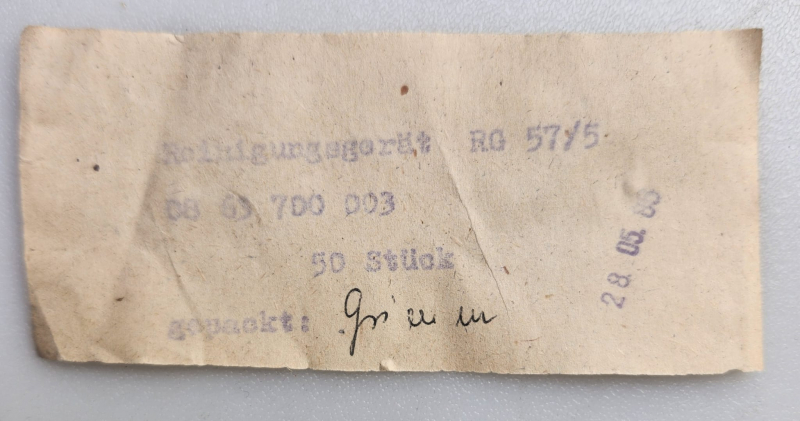 Reinigungsgerät RG 57/5
08 63 700 003
50 Stück
gepackt:
28. 05. 85